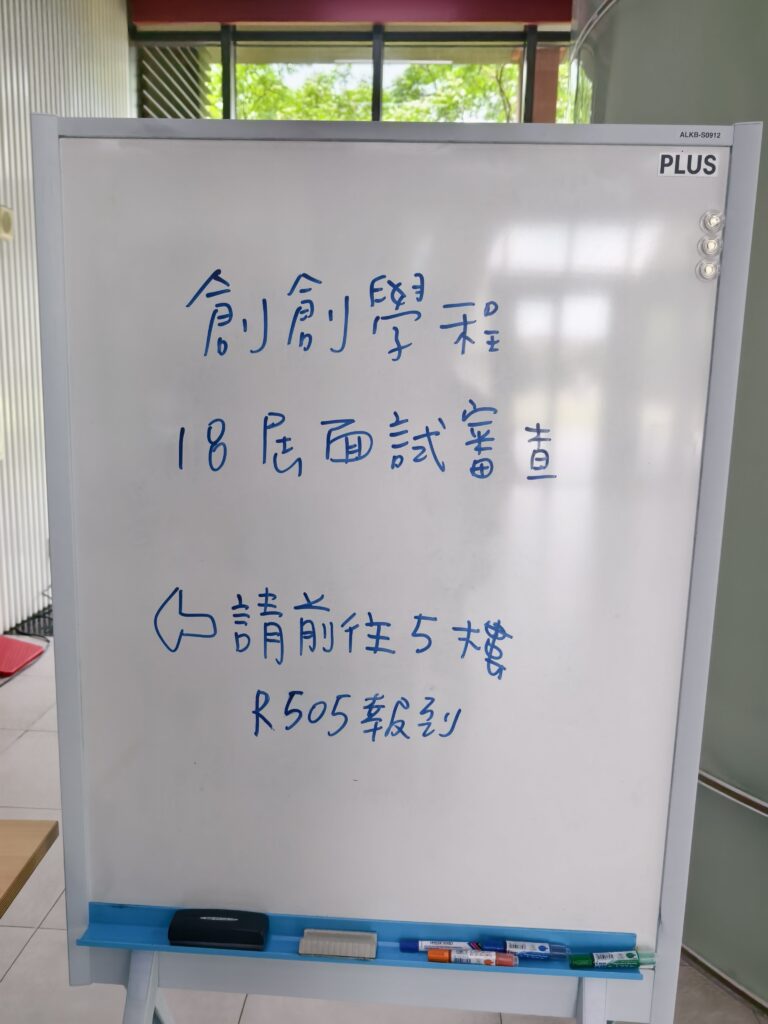 ALKB-S0912
PLUS
創創學程
18屆面試審查
請前往5樓
R505報到